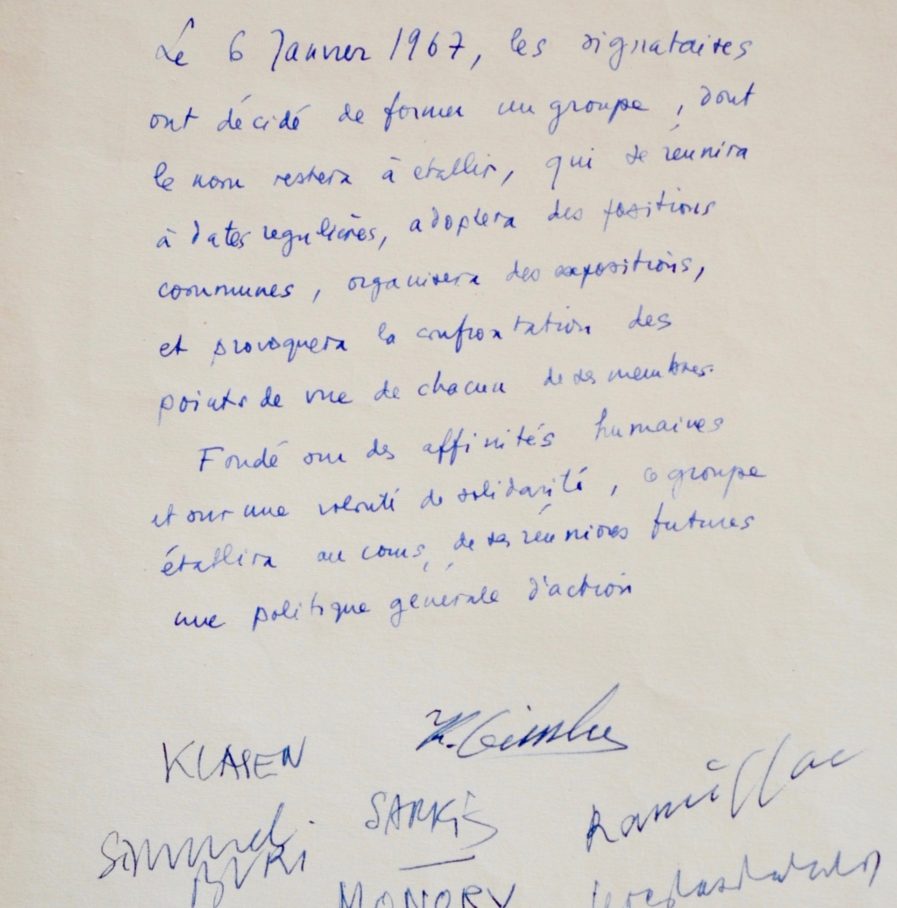 Le 6 Janvier 1967, les signataires
ont décidé de former un groupe, dont
le nom restera à établir, qui se réunira
à dates regulières, adoptera des positions
communes, organisera des expositions,
et provoquera la confrontation des
points de vue de chacun de ses membres.
Fondé sur des affinités humaines
et sur une volonté de solidarité, ce groupe
établira au cours, de ses réunions futures
une politique générale d'action
KLASEN
SARKIS
BURI
MONORY